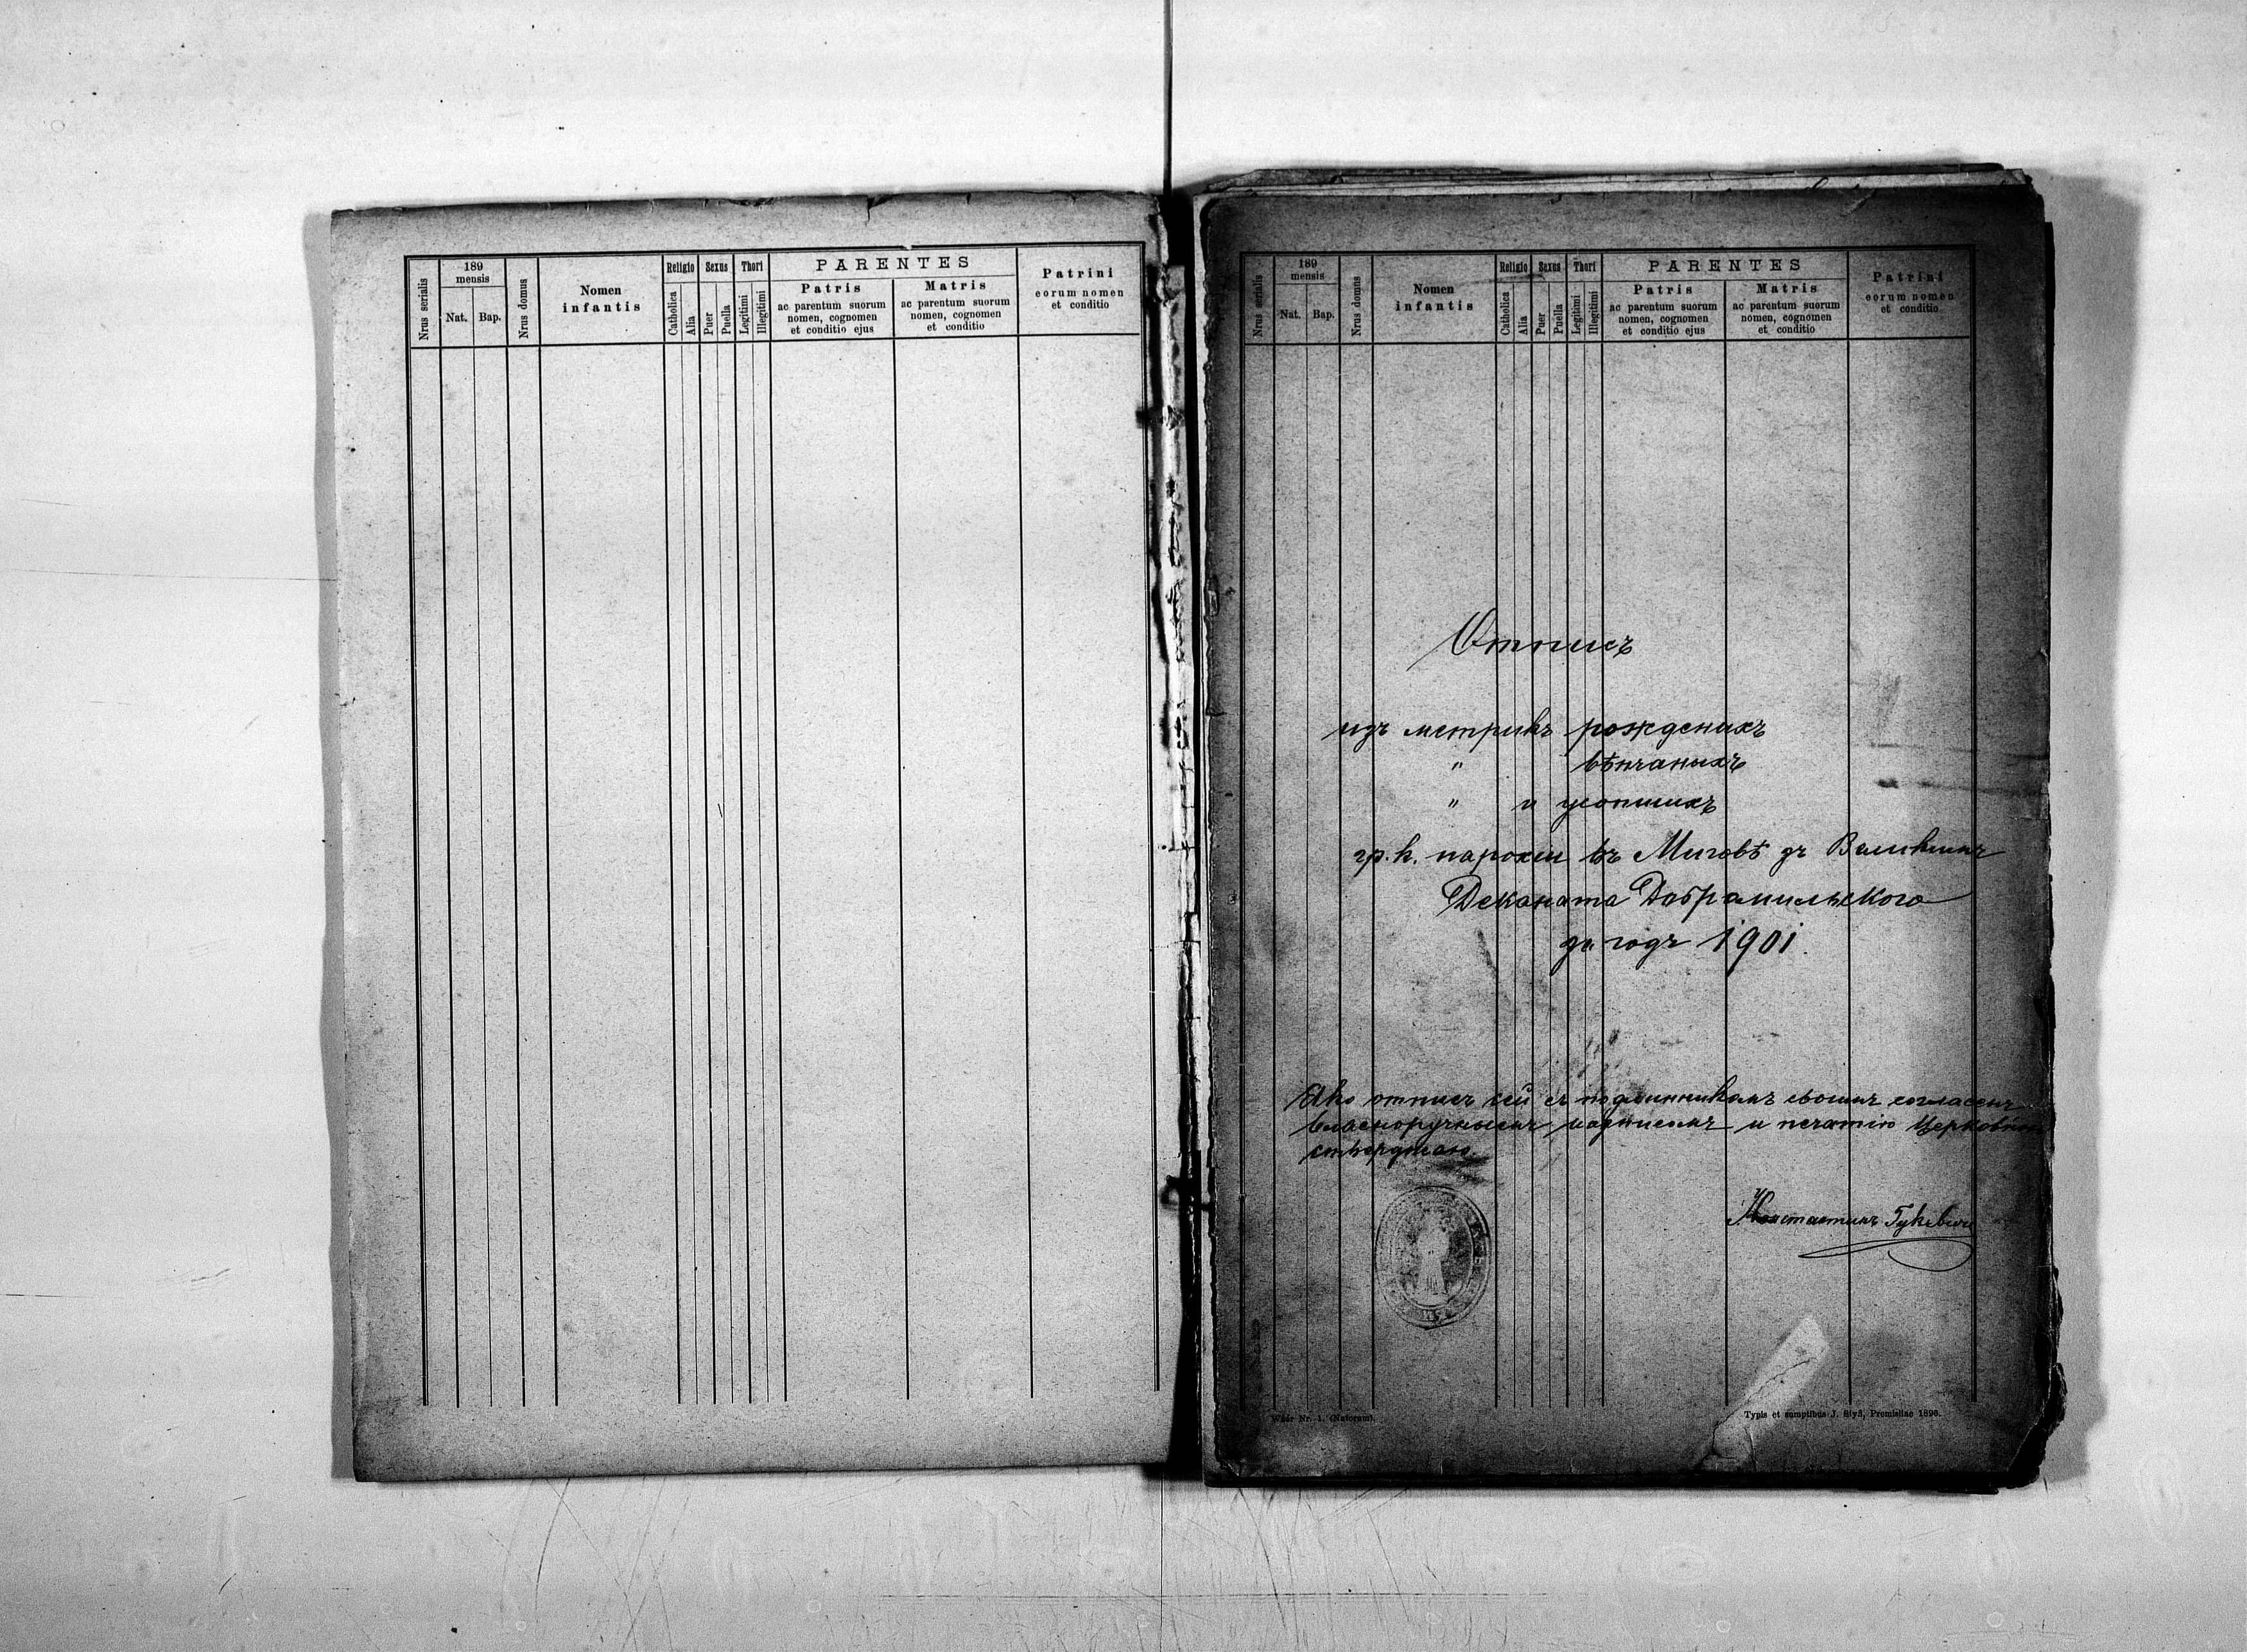 Nrus serialis
189
mensis
Nat.
Bap.
Nrus domus
Nomen
infantis
Religio
Catholica
Alia
Sexus
Puer
Puella
Thori
Legitimi
Illegitimi
PARENTES
Patris
ac parentum suorum
nomen, cognomen
et conditio ejus
Matris
ac parentum suorum
nomen, cognomen
et conditio
Patrini
eorum nomen
et conditio
Nrus serialis
189
mensis
Nat.
Bap.
Nrus domus
Nomen
infantis
Religio
Catholica
Alia
Sexus
Puer
Puella
Thori
Legitimi
Illegitimi
PARENTES
Patris
ac parentum suorum
nomen, cognomen
et conditio ejus
Matris
ac parentum suorum
nomen, cognomen
et conditio
Patrini
eorum nomen
et conditio
Отписъ
изъ метрикъ рожденихъ
" вѣнчаныхъ
" и усопшихъ
гр. к. парохіи въ Миговѣ зъ
Деканата Добромильского
за годъ 1901.
Яко отписъ сей съ подлинникамъ своимъ согласенъ
власноручнымъ подписомъ и печатію
ствердждаю.
Константинъ
Wzór Nr. 1. (Natorum).
Typis et sumptibus J. Styfi, Premisliae 1896.